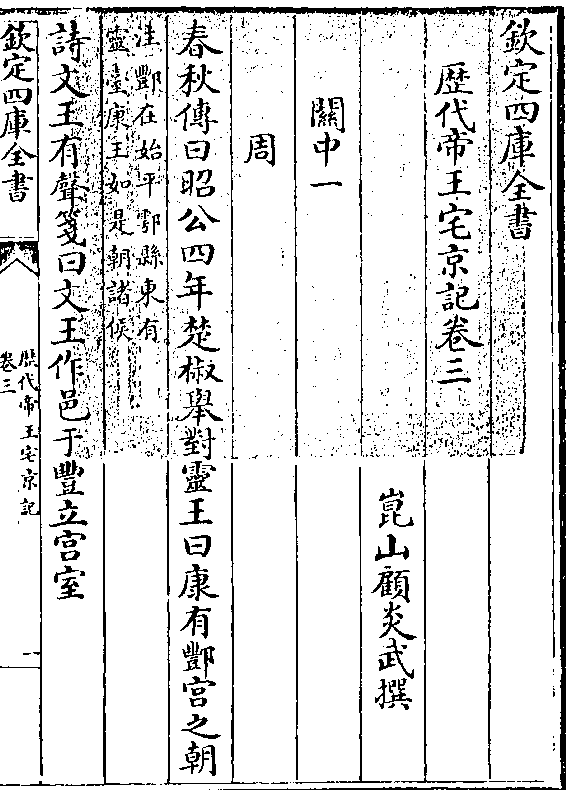 欽定四庫全書
歴代帝王宅京記卷三
崑山顧炎武撰
關中一
周
春秋傳曰昭公四年楚椒舉對靈王曰康有酆宮之朝
注酆在始平鄠縣東有
靈臺康王如是朝諸侯
詩文王有聲箋曰文王作邑于豐立宮室
欽定四庫全書
歴代帝王宅京記
卷三
一